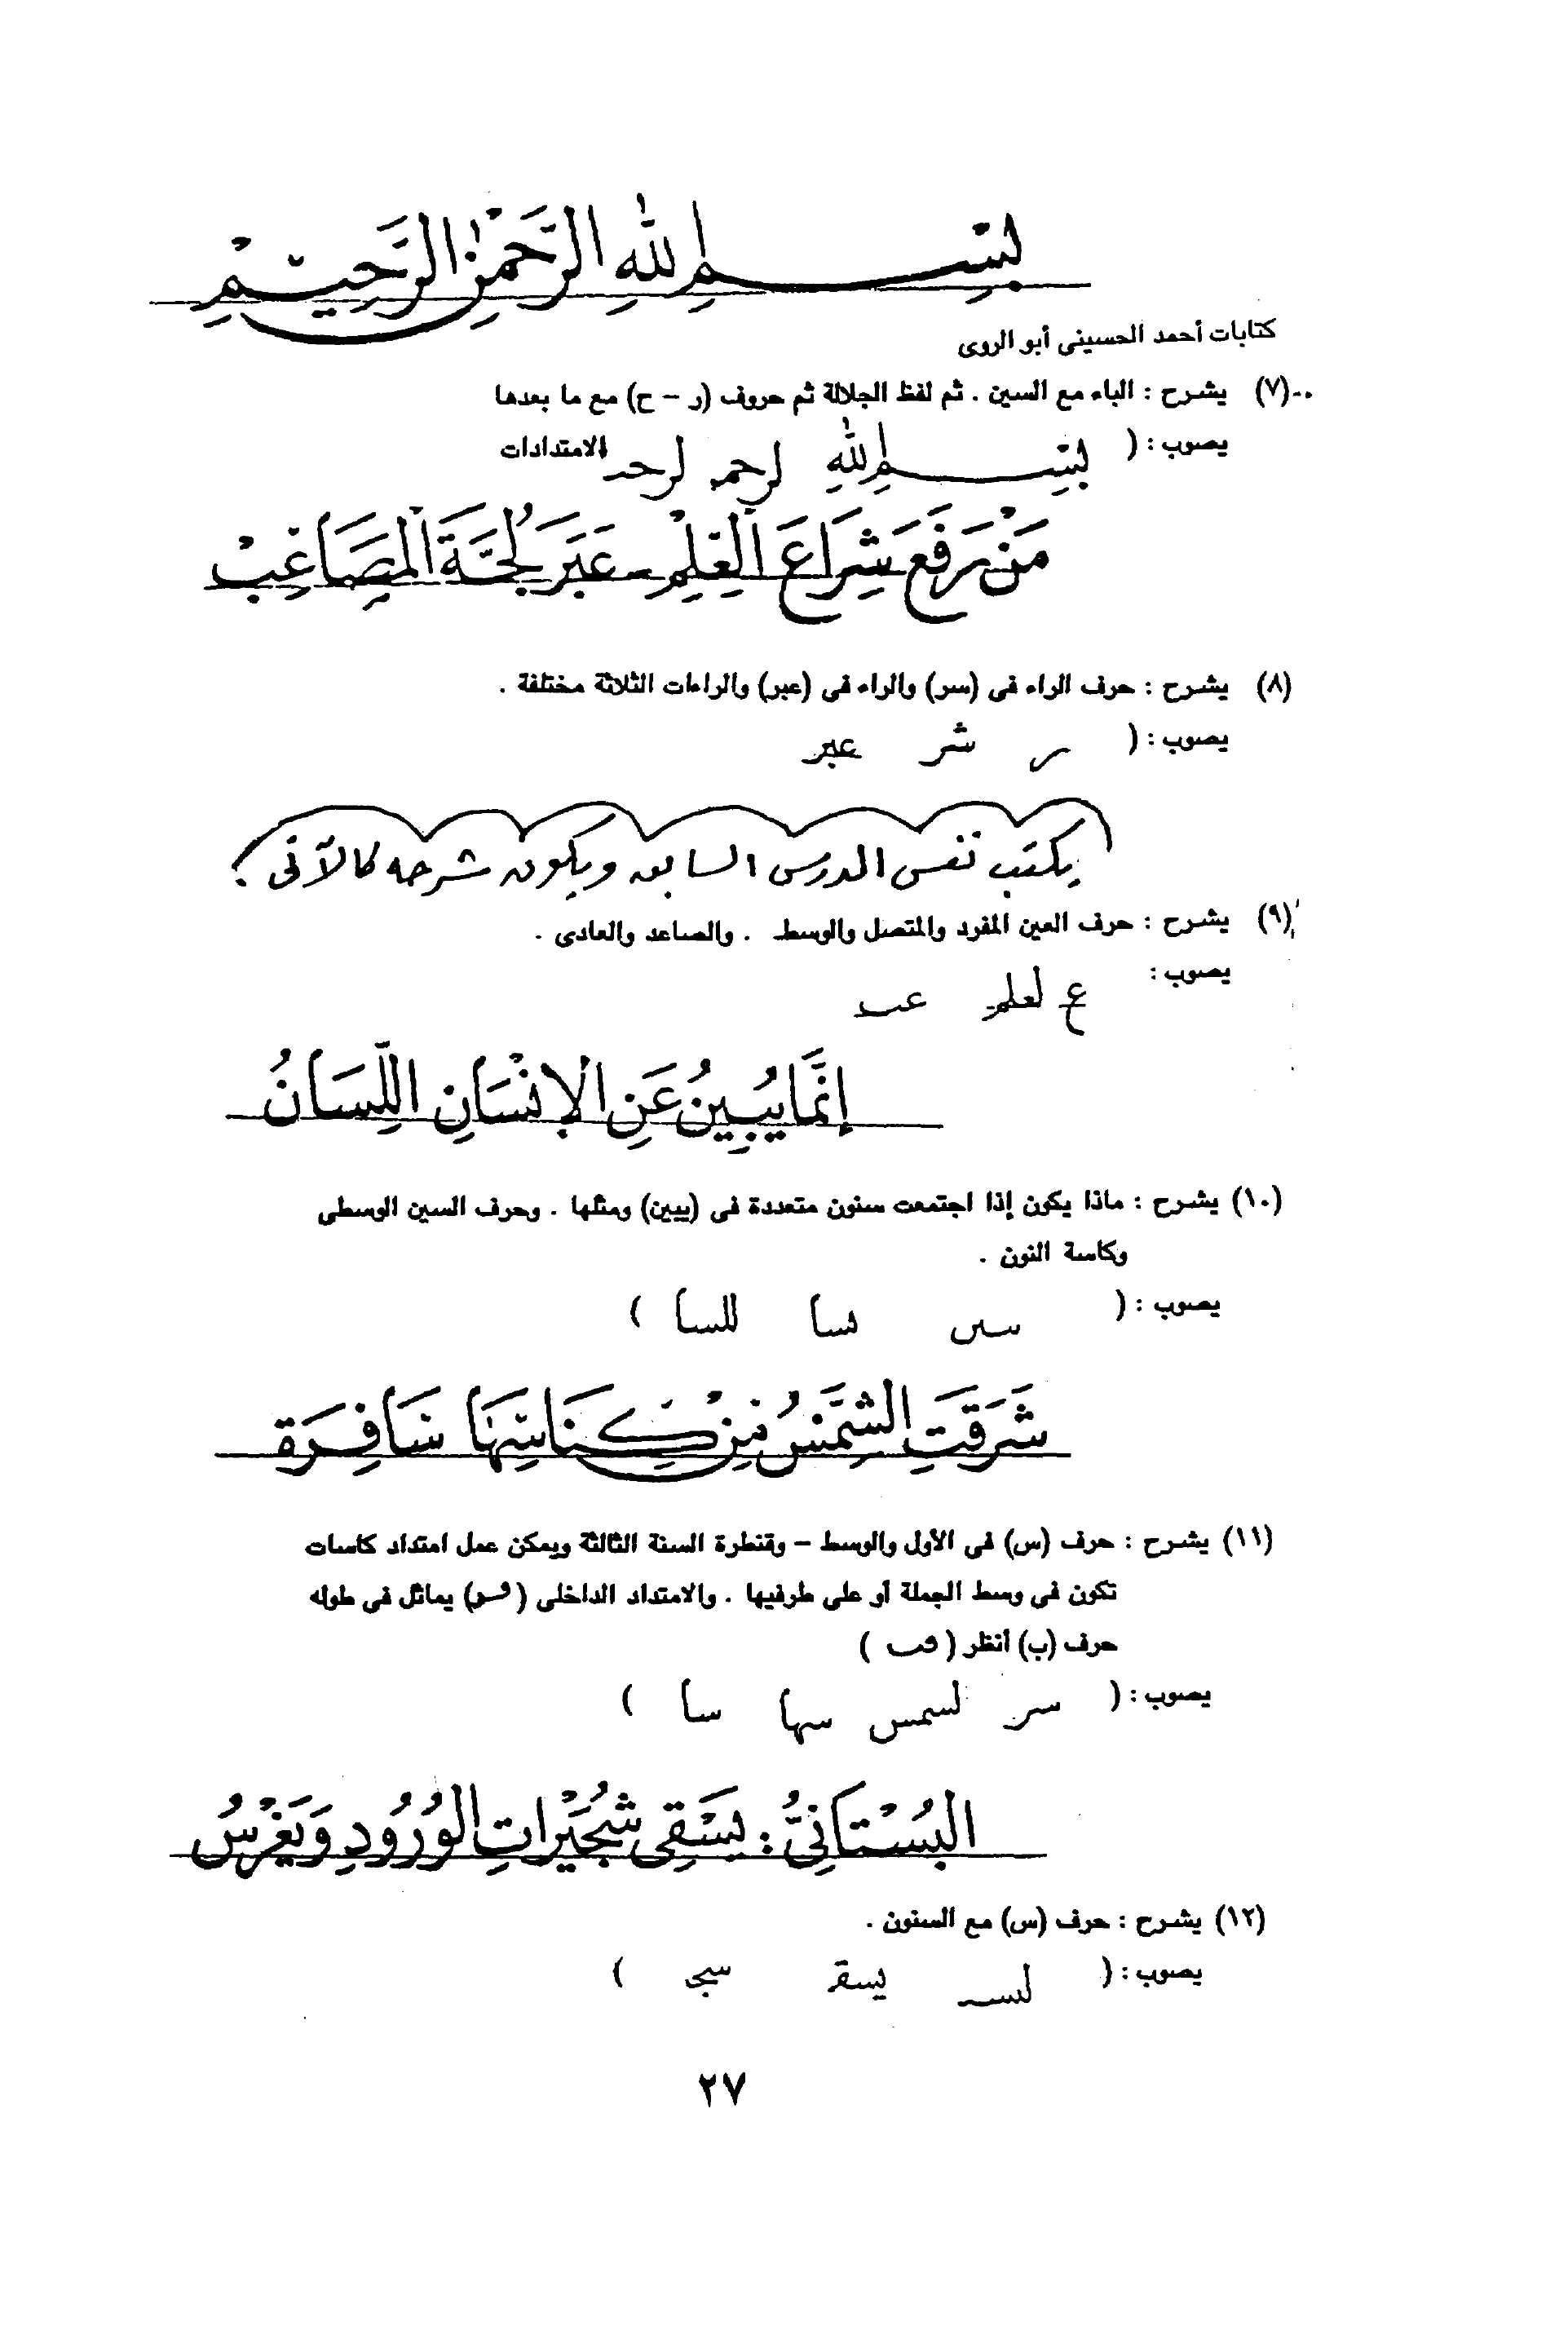 بِسْمِ اللهِ الرَّحْمٰنِ الرَّحِيْمِ
كتابات أحمد الحسينى أبو الروى
(٧) يشرح : الباء مع السين . ثم لفظ الجلالة ثم حروف (ر – ح) مع ما بعدها
يصوب : ( بِسْمِ اللهِ لرحمـ لرحـ الامتدادات
مَنْ رَفَعَ شِرَاعَ الْعِلْمِ - عَبَرَ لُجَّةَ الْمَصَاعِبْ
(٨) يشرح : حرف الراء فى (سر) والراء فى (عبر) والراءات الثلاثة مختلفة .
يصوب : ( ر شر عبر
يكتب نفس الدرس السابق ويكون شرحه كالآتى :
(٩) يشرح : حرف العين المفرد والمتصل والوسط . والصاعد والعادى .
يصوب : ع لعلم عب
إِنَّمَا يُبِينُ عَنِ الإِنْسَانِ اللِّسَانُ
(١٠) يشرح : ماذا يكون إذا اجتمعت سنون متعددة فى (يبين) ومثلها . وحرف السين الوسطى
وكاسة النون .
يصوب : ( سں نسا للسا )
شَرَقَتِ الشَّمْسُ مِنْ كِنَاسِهَا سَافِرَة
(١١) يشرح : حرف (س) فى الأول والوسط – وقنطرة السنة الثالثة ويمكن عمل امتداد كاسات
تكون فى وسط الجملة أو على طرفيها . والامتداد الداخلى ( فـر) يماثل فى طوله
حرف (ب) أنظر ( فب )
يصوب : ( سر لسمس سها سا )
البُسْتَانِيُّ : يَسْقِى شُجَيْرَاتِ الوُرُودِ وَيَغْرِسُ
(١٢) يشرح : حرف (س) مع السنون .
يصوب : ( لبسـ يسقـ سجـ )
٢٧